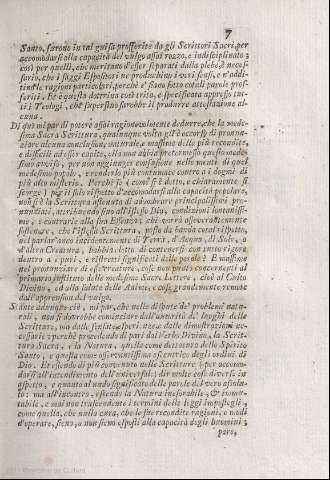 7
Santo, furono in tal guisa profferite da gli Scrittori Sacri per
accomodarsi alla capacità del vulgo assai rozo, e indisciplinato;
così per quelli, che meritano d'esser separati dalla plebe, è neces-
sario, che i saggi Espositori ne produchino i veri sensi, e n'addi-
tino le ragioni particolari, perchè e' siano sotto cotali parole prof-
feriti. Et è questa dottrina così trita, e specificata appresso tut-
ti i Teologi, che superfluo sarebbe il produrre attestazione al-
cuna.
Di qui mi par di potere assai ragionevolmente dedurre, che la mede-
sima Sacra Scrittura, qualunque volta gli è occorso di pronun-
ziare alcuna conclusione naturale, e massime delle più recondite,
e difficili ad esser capite, ella non abbia pretermesso questo mede-
simo avviso, per non aggiunger confusione nelle menti di quel
medesimo popolo, e renderlo più contumace contro a i dogmi di
più alto misterio. Perchè se (come si è detto, e chiaramente si
scorge) per il solo rispetto d'accomodarsi alla capacità popolare,
non si è la Scrittura astenuta di adombrare principalissimi pro-
nunziati, attribuendo sino all'istesso Dio, condizioni lontanissi-
me, e contrarie alla sua Essenza; chi vorrà asseverantemente
sostenere, che l'istessa Scrittura, posto da banda cotal rispetto,
nel parlar anco incidentemente di Terra, d'Acqua, di Sole, o
d'altra Creatura, habbia eletto di contenersi con tutto rigore
dentro a i puri, e ristretti significati delle parole? E massime
nel pronunziare di esse creature, cose non punto concernenti al
primario instituto delle medesime Sacre Lettere, cioè al Culto
Divino, ed alla salute delle Anime, e cose grandemente remote
dall'apprension del vulgo.
Stante adunque ciò, mi par, che nelle dispute de' problemi natu-
rali, non si dovrebbe cominciare dall'autorità de' luoghi delle
Scritture, ma dalle sensate esperienze, e dalle dimostrazioni ne-
cessarie: perchè procedendo di pari dal Verbo Divino, la Scrit-
tura Sacra, e la Natura, quella come dettatura dello Spirito
Santo, e questa come osservantissima esecutrice degli ordini di
Dio. Et essendo di più convenuto nelle Scritture (per accomo-
darsi all'intendimento dell'universale) dir molte cose diverse in
aspetto, e quanto al nudo significato delle parole dal vero assolu-
to: ma all'incontro, essendo la Natura inesorabile, & immu-
tabile, e mai non trascendente i termini delle leggi impostegli,
come quella, che nulla cura, che le sue recondite ragioni, e modi
d'operare, sieno, o non sieno esposti alla capacità degli huomini;
pare,